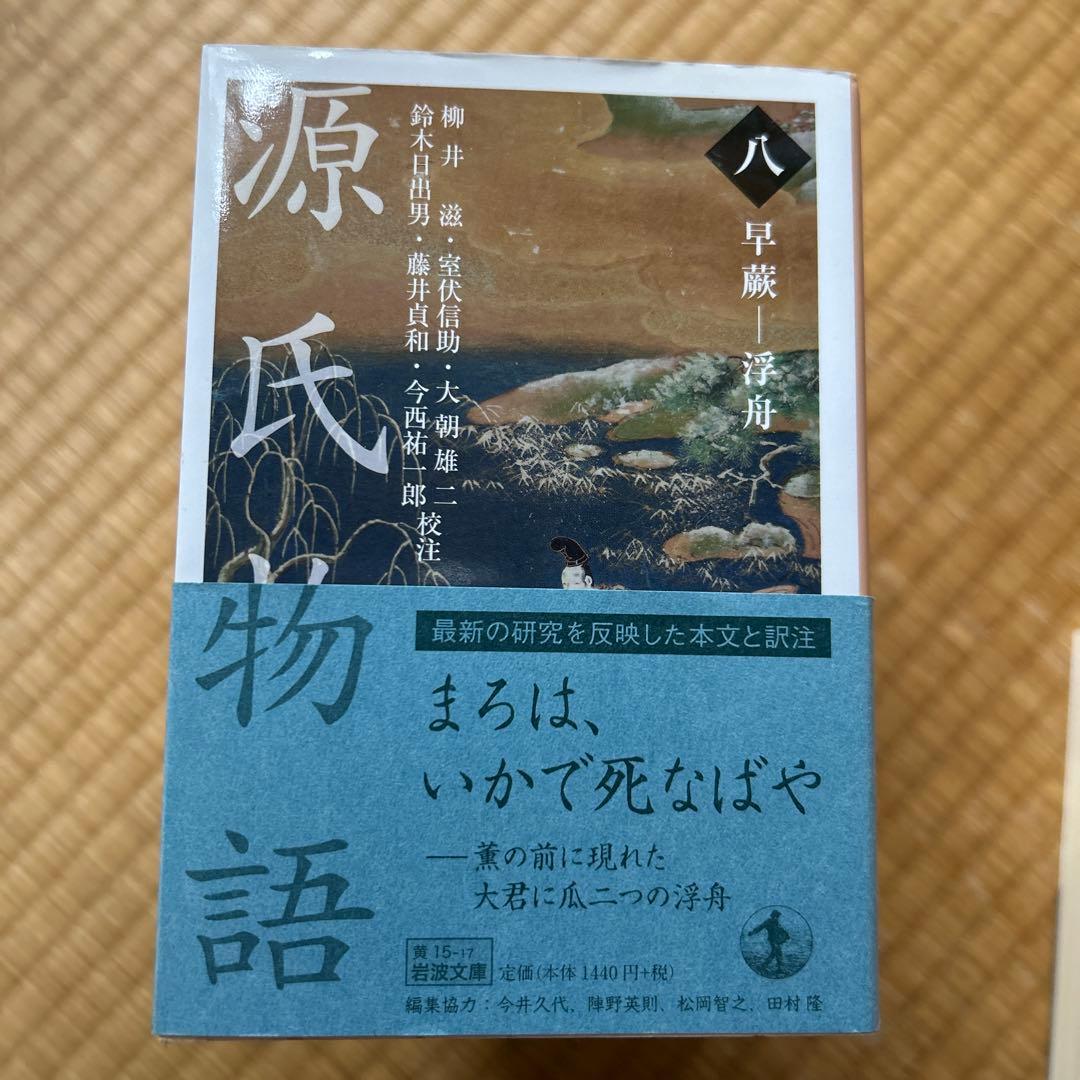 源氏物語
八
早蕨―浮舟
柳井 滋・室伏信助・大朝雄二
鈴木日出男・藤井貞和・今西祐一郎 校注
最新の研究を反映した本文と訳注
まろは、
いかで死なばや
――薫の前に現れた
大君に瓜二つの浮舟
黄 15-17
岩波文庫
定価(本体 1440 円+税)
編集協力：今井久代、陣野英則、松岡智之、田村 隆